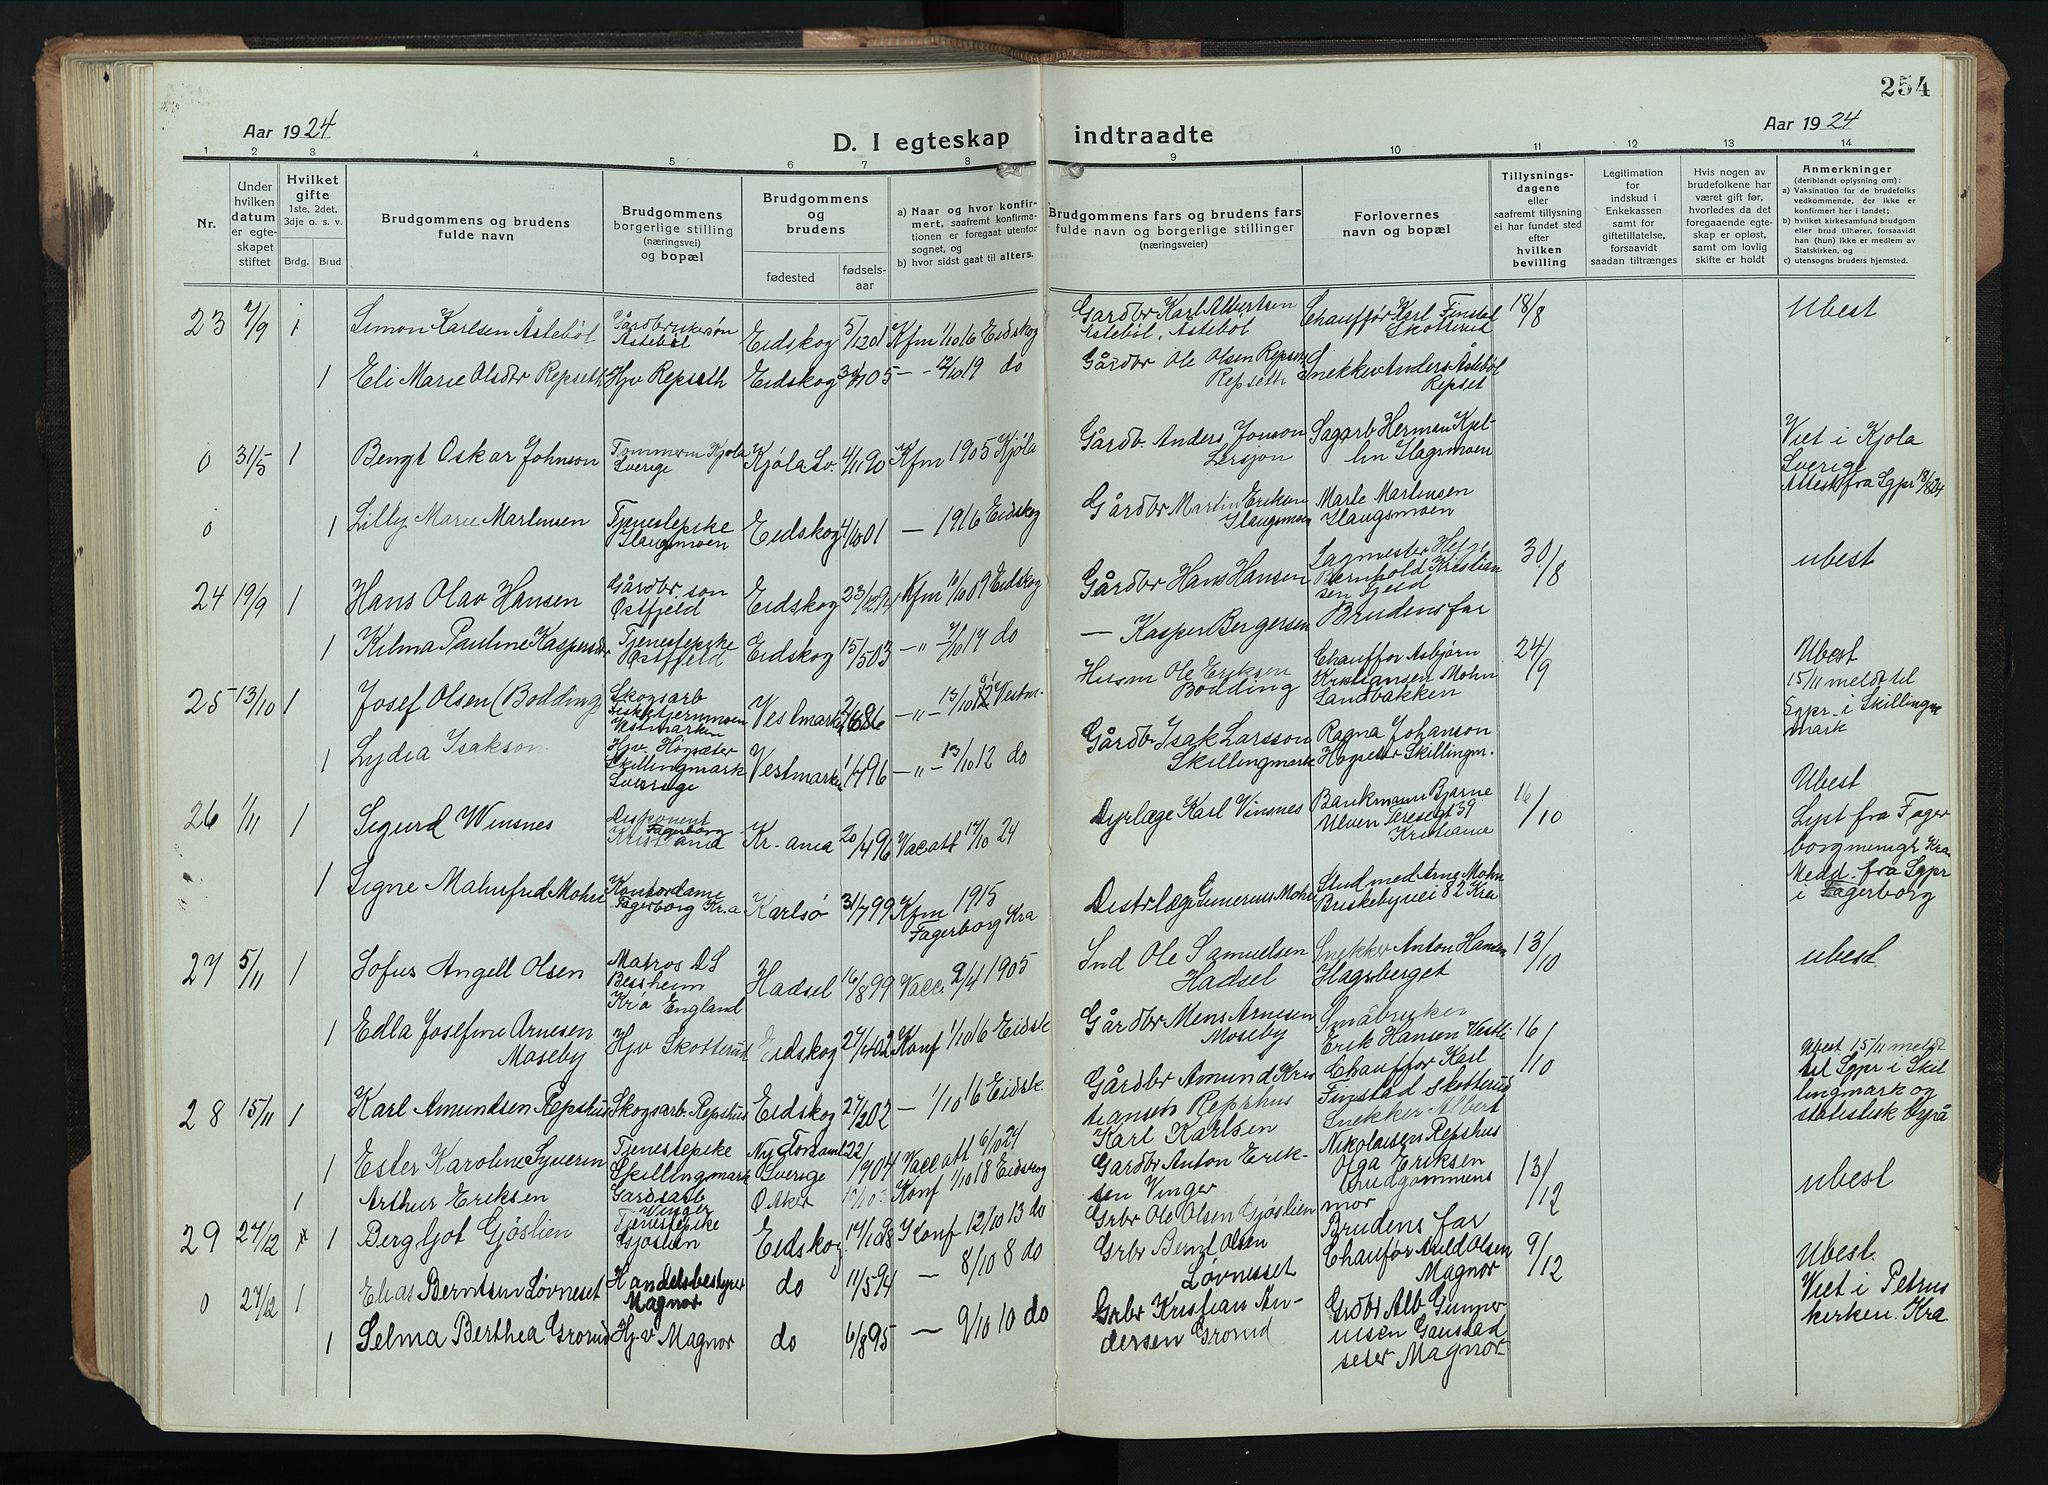 254
Aar 1924
D. I egteskap indtraadte
Aar 1924
1 2 3 4 5 6 7 8 9 10 11 12 13 14
Nr.
Under hvilken datum er egteskapet stiftet
Hvilket gifte 1ste, 2det, 3dje o. s. v.
Brdg. Brud
Brudgommens og brudens fulde navn
Brudgommens borgerlige stilling (næringsvei) og bopæl
Brudgommens og brudens
fødested
fødselsaar
a) Naar og hvor konfirmert, saafremt konfirmationen er foregaat utenfor sognet, og
b) hvor sidst gaat til alters.
Brudgommens fars og brudens fars fulde navn og borgerlige stillinger (næringsveier)
Forlovernes navn og bopæl
Tillysningsdagene eller saafremt tillysning ei har fundet sted efter hvilken bevilling
Legitimation for indskud i Enkekassen samt for giftetillatelse, forsaavidt saadan tiltrænges
Hvis nogen av brudefolkene har været gift før, hvorledes da det foregaaende egteskap er opløst, samt om lovlig skifte er holdt
Anmerkninger
(deriblandt oplysning om):
a) Vaksination for de brudefolks vedkommende, der ikke er konfirmert her i landet;
b) hvilket kirkesamfund brudgom eller brud tilhører, forsaavidt han (hun) ikke er medlem av Statskirken, og
c) utensogns bruders hjemsted.
23 7/9 1 Simon Karlsen Åstebøl Gårdbrukersøn Åstebøl Eidskog 5/12 01 Kfm 1/10 16 Eidskog Gårdbr Karl Albertsen Åstebøl, Åstebøl Chauffør Karl Finstad Skotterud 18/8 Ubest
1 Eli Marie Olsdtr Repseth Hjv Repseth Eidskog 05 – – 12/10 19 do Gårdbr Ole Olsen Repseth Snekker Anders Åstebøl Repset
0 31/5 1 Bengt Oskar Johnson Tømmerm Kjøla Sverige Kjøla Sv. 4/11 90 Kfm 1905 Kjøla Gårdb. Anders Jonson Sagarb Herman Slagsmoen Viet i Kjøla Sverige Attest fra Sgpr 18/8 24
0 1 Lilly Marie Martinsen Tjenestepike Slaugsmoen Eidskog 01 – 1916 Eidskog Gårdbr Martin Eriksen Slaugsmoen Marie Martinsen Slaugsmoen
24 19/9 1 Hans Olav Hansen Gårdbr. søn Østfjeld Eidskog 23/12 94 Kfm 09 Eidskog Gårdbr Hans Hansen Sagmester Helge Bernhold Kristiansen Gjeld 30/8 ubest
1 Kilma Pauline Kaspersdtr Tjenestepike Østfjeld Eidskog 15/5 03 –„– 7/10 17 do – Kasper Bergersen Brudens far
25 13/10 1 Josef Olsen (Bodding) Skogsarb Vestmarken Vestmarken 86 –„– 13/10 Vestm. Husm Ole Eriksen Bodding Chauffør Asbjørn Kristiansen Mohn Sandbakken 24/9 Ubest 15/11 meldt til Sgpr. i Skillingmark
1 Lydia Isakson Hjv. Högsæter Skillingmark Sverige Vestmarken 1/4 96 –„– 13/10 12 do Gårdbr Isak Larsson Skillingmark Ragna Johanson Hogseter Skillingm.
26 1/11 1 Sigurd Winsnes Disponent Fagerborg Kristiania Kr.ania 20/4 96 Vac att 17/10 24 Dyrlæge Karl Vinsnes Bankmann Bjarne Ulven Teresegt 39 Kristiania 16/10 Ubest Lyst fra Fagerborg menigh Kra Medd. fra Sgpr i Fagerborg
1 Signe Malmfrid Mohn Kontordame Fagerborg Kr.a Karlsø 31/7 99 Kfm 1915 Fagerborg Kra Distrlæge Gunerius Mohn Stud med Arne Mohn Briskebyvei 82 Kra
27 5/11 1 Sofus Angell Olsen Matros DS Bessheim Kr.a England Hadsel 16/8 99 Vacc. 2/4 1905 Ind Ole Samuelsen Hadsel Snekker Anton Hansen Hagsberget 13/10 ubest.
1 Edla Josefine Arnesen Moseby Hjv Skotterud Eidskog 27/4 02 Konf 1/10 16 Eidsk Gårdbr Mens Arnesen Moseby Småbruker Erik Hansen Vestli
28 15/11 1 Karl Amundsen Repshus Skogsarb. Repshus Eidskog 27/2 02 – 1/10 16 Eidsk. Gårdbr Amund Kristiansen Repshus Chauffør Karl Finstad Skotterud 16/10 Ubest 15/11 meldt til Sgpr i Skillingmark og statistisk byrå
1 Ester Karoline Syverin Tjenestepike Skillingmark Sverige 22/1 904 Vacc att 6/10 24 Karl Karlsen Snekker Albert Nikolaisen Repshus
1 Arthur Eriksen Gårdsarb Vinger Ø Aker 03 Konf 1/10 18 Eidskog Gårdbr Anton Eriksen Vinger Olga Eriksen brudgommens mor 13/12 ubest
29 27/12 1 Bergljot Gjøslien Tjenestepike Gjøslien Eidskog 17/1 98 Konf 12/10 13 do Grbr Ole Olsen Gjøslien Brudens far
0 27/12 1 Elias Berntsen Løvneset Handelsbestyrer Magnor do 11/5 94 – 8/10 8 do Grbr Bernt Olsen Løvnesset Chauffør Olsen Magnor 9/12 Ubest. Viet i Petruskirken. Kra
1 Selma Berthea Grorud Hj.v Magnor do 6/8 95 – 9/10 10 do Grbr Kristian Andersen Grorud Grdbr Alb Gunneriusen Gaustadseter Magnor